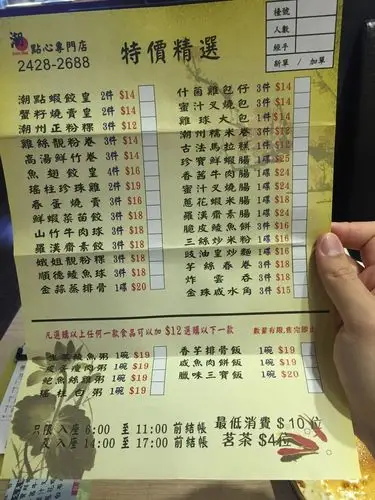 潮
點心專門店
2428-2688
特價精選
檯號
人數
經手
新單 / 加單
潮點蝦餃皇 2件 $14
蟹籽燒賣皇 2件 $14
潮州正粉粿 3件 $12
雞絲靚粉卷 3件 $14
高湯鮮竹卷 3件 $14
魚翅餃 4件 $16
瑤柱珍珠雞 2件 $19
香蛋燒賣 3件 $16
鮮蝦菜苗餃 3件 $18
山竹牛肉球 3件 $18
羅漢齋素餃 3件 $18
娥姐靚粉粿 3件 $18
順德鯪魚球 3件 $18
金蒜蒸排骨 1碟 $20
什菌雞包仔 3件 $14
蜜汁叉燒包 3件 $14
雞球大包 1件 $14
潮州糯米卷 3件
古法馬拉糕 1件
珍寶鮮蝦腸 1碟 $25
香茜牛肉腸 1碟 $24
蜜汁叉燒腸 1碟 $24
蔥花蝦米腸 1碟 $18
羅漢齋素腸 1碟 $24
脆皮鯪魚餅 3件 $16
三絲炒米粉 1碟 $16
豉油皇炒麵 1碟 $16
芋絲春卷 3件 $16
炸雲吞 3件 $18
金珠咸水角 3件 $15
凡選購以上任何一款食品可以加 $12 選購以下一款
數量有限,售完即止
鯪魚粥 1碗 $19
皮蛋瘦肉粥 1碗 $19
鮑魚絲雞粥 1碗 $19
瑤柱白粥 1碗 $19
香芋排骨飯 1碗 $19
咸魚肉餅飯 1碗 $19
臘味三寶飯 1碗 $20
只限入座 6:00 至 11:00 前結帳
及入座 14:00 至 17:00 前結帳
最低消費 $10位
茗茶 $4位